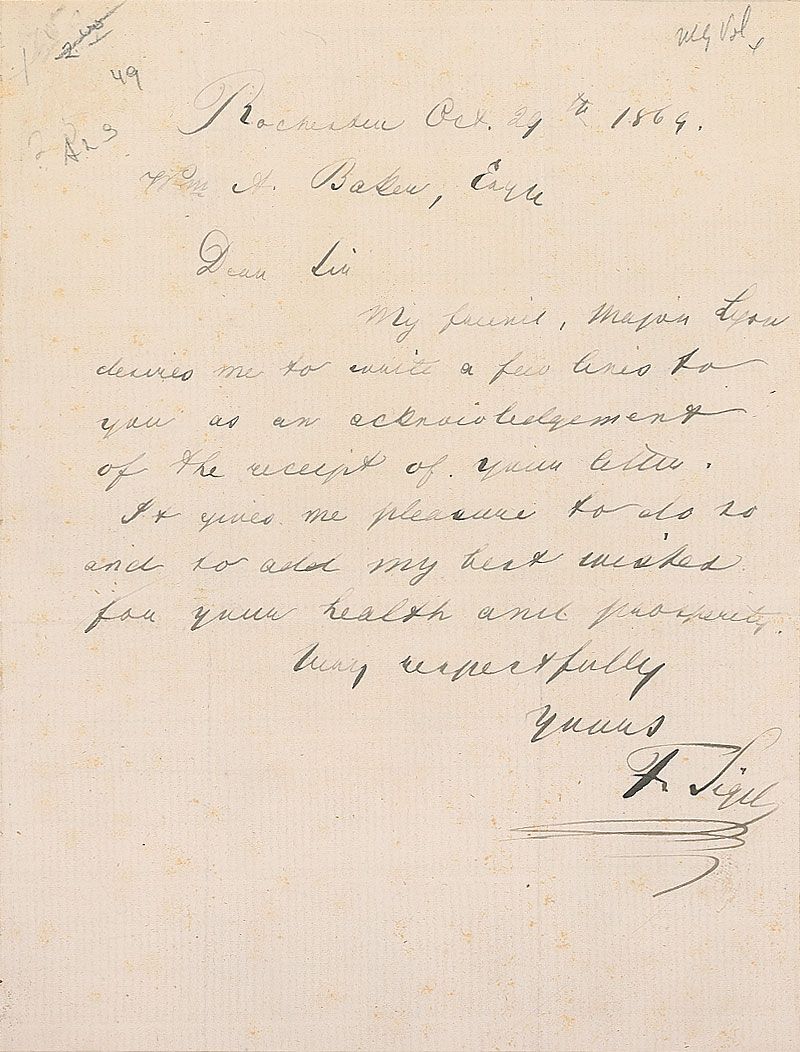 49
Rochester Oct. 29th 1869.
Wm A. Baker, Esqu
Dear Sir
My friend, Major Lyon
desires me to write a few lines to
you as an acknowledgement
of the receipt of your letter.
It gives me pleasure to do so
and to add my best wishes
for your health and prosperity.
Very respectfully
yours
Fr. Sigel